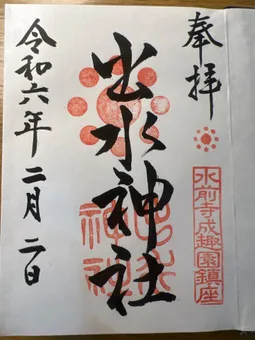 奉拝
水前寺成趣園鎮座
出水神社
出水神社
令和六年二月二日